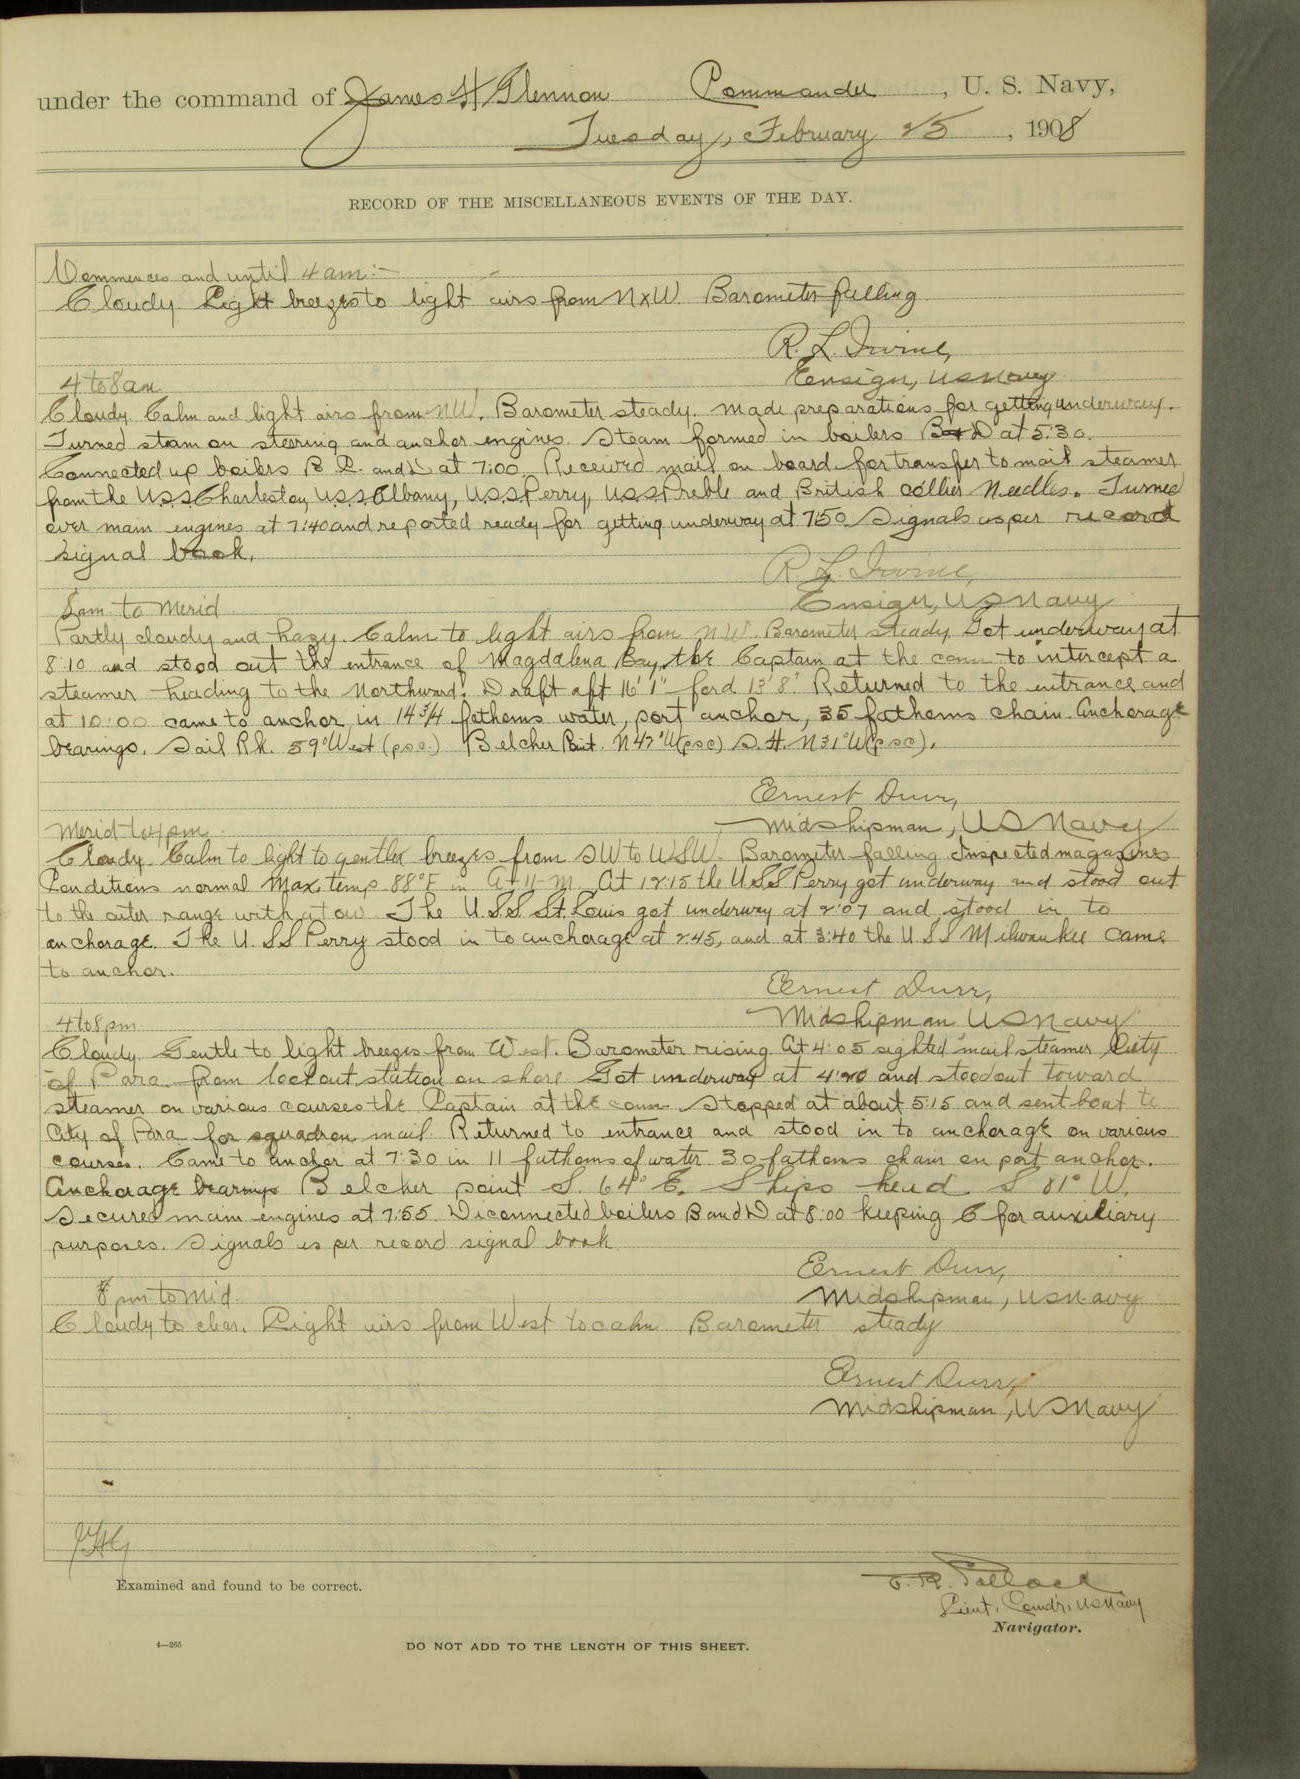 under the command of James H Glennon Commander, U. S. Navy,
Tuesday, February 25, 1908
RECORD OF THE MISCELLANEOUS EVENTS OF THE DAY.
Commences and until 4 am:-
Cloudy Light breezes to light airs from NxW. Barometer falling
R. L. Irvine,
Ensign, US Navy
4 to 8 am
Cloudy Calm and light airs from NW. Barometer steady. Made preparations for getting underway.
Turned steam on steering and anchor engines. Steam formed in boilers B & D at 5:30.
Connected up boilers B C. and D at 7:00 Received mail on board for transfer to mail steamer
from the U.S.S Charleston, U.S.S Albany, U.S.S Perry, U.S.S Preble and British collier Needles. Turned
over main engines at 7:40 and reported ready for getting underway at 7:50. Signals as per record
signal book.
R. L. Irvine,
Ensign, US Navy
8 am to Merid
Partly cloudy and hazy. Calm to light airs from NW. Barometer steady Got underway at
8:10 and stood out the entrance of Magdalena Bay, the Captain at the conn to intercept a
steamer heading to the Northward. Draft aft 16' 1" ford 13' 8". Returned to the entrance and
at 10:00 came to anchor in 14 3/4 fathoms water, port anchor, 35 fathoms chain. Anchorage
bearings. Sail Rk. 59° West (psc) Belcher Point. N 47° W (psc) S. H. N 31° W (psc).
Ernest Durr,
Midshipman, US Navy
Merid to 4 pm
Cloudy. Calm to light to gentler breezes from SW to WSW. Barometer falling Inspected magazines
Conditions normal Max. temp 88°F in A-11-M. At 12:15 the U.S.S Perry got underway and stood out
to the outer range with a tow The U.S.S St. Louis got underway at 2:07 and stood in to
anchorage. The U.S.S Perry stood in to anchorage at 2:45, and at 3:40 the U.S.S Milwaukee came
to anchor.
Ernest Durr,
Midshipman US Navy
4 to 8 pm
Cloudy Gentle to light breezes from West. Barometer rising At 4:05 sighted mail steamer City
of Para from lookout station on shore Got underway at 4:20 and stood out toward
steamer on various courses the Captain at the conn Stopped at about 5:15 and sent boat to
City of Para for squadron mail Returned to entrance and stood in to anchorage on various
courses. Came to anchor at 7:30 in 11 fathoms of water 30 fathoms chain on port anchor.
Anchorage bearings Belcher point S. 64° E. Ships head S 81° W.
Secured main engines at 7:55. Disconnected boilers B and D at 8:00 keeping C for auxiliary
purposes. Signals as per record signal book
Ernest Durr,
Midshipman, US Navy
8 pm to Mid.
Cloudy to clear. Light airs from West to calm Barometer steady
Ernest Durr,
Midshipman, US Navy
JHG
Examined and found to be correct.
Pollock
Lieut. Comdr, US Navy
Navigator.
4—265
DO NOT ADD TO THE LENGTH OF THIS SHEET.